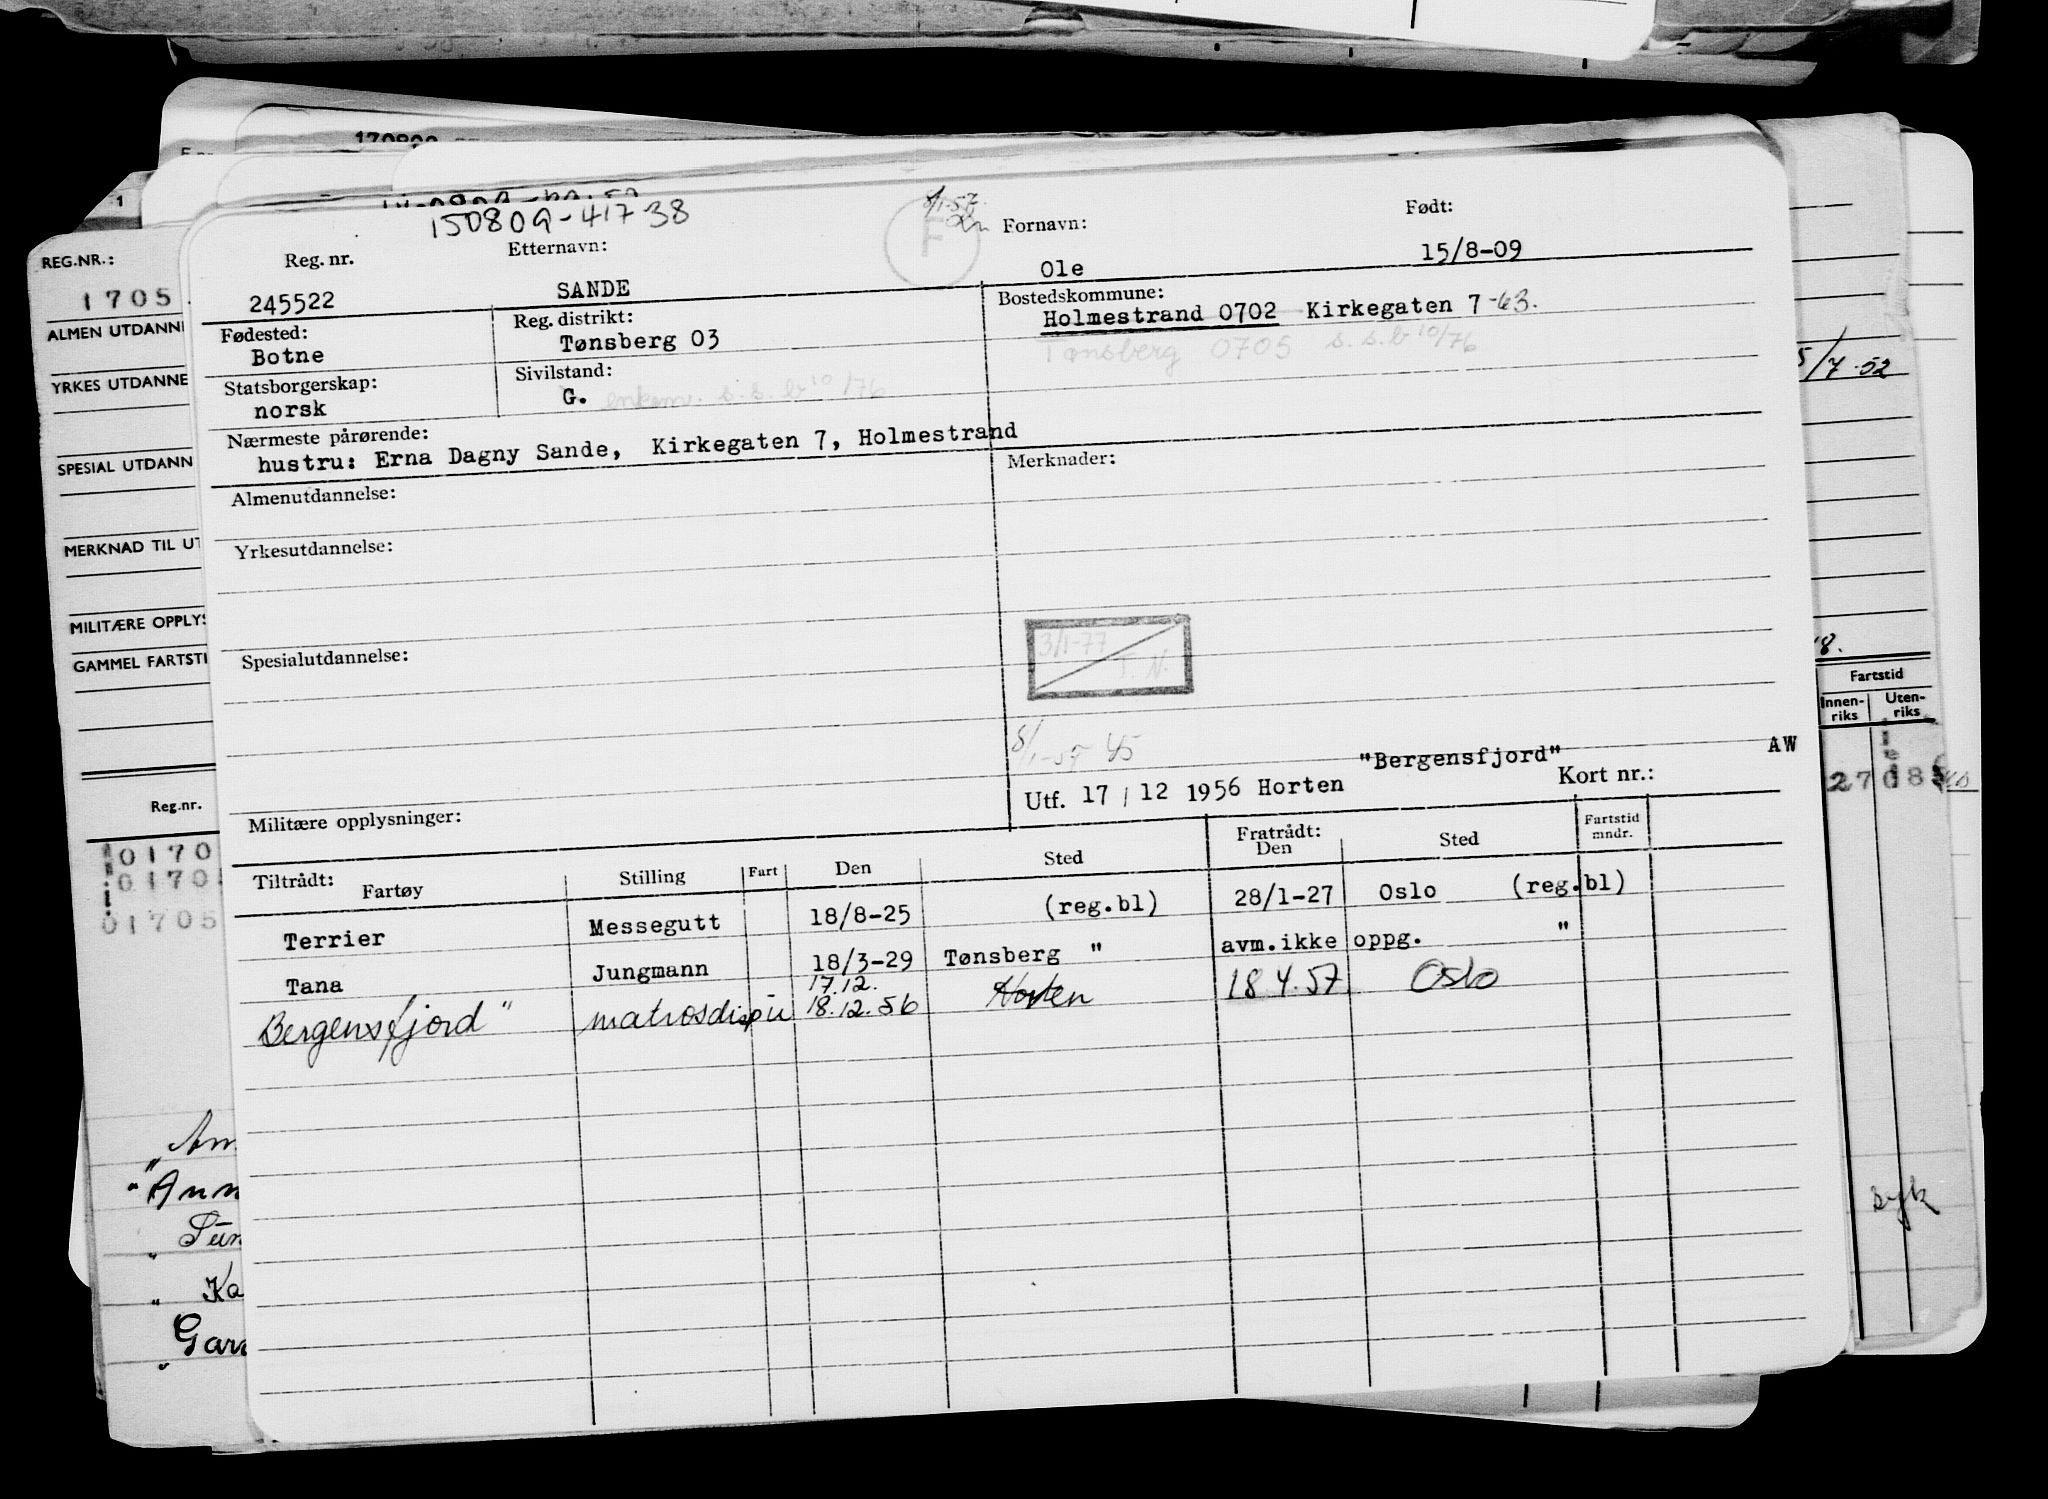 170809
150809-41738
8/1-57.
F
Reg. nr.
Etternavn:
Fornavn:
Født:
245522
SANDE
Ole
15/8-09
Fødested:
Botne
Reg. distrikt:
Tønsberg 03
Bostedskommune:
Holmestrand 0702 Kirkegaten 7 -63.
Tønsberg 0705 s.s.b 10/76
Statsborgerskap:
norsk
Sivilstand:
G. enkem. s.s.b 10/76
Nærmeste pårørende:
hustru: Erna Dagny Sande, Kirkegaten 7, Holmestrand
Almenutdannelse:
Merknader:
Yrkesutdannelse:
Spesialutdannelse:
3/1-77
T. N.
8/1-57 45
Militære opplysninger:
"Bergensfjord"
AW
Utf. 17 / 12 1956 Horten
Kort nr.:
Tiltrådt:
Fartøy
Stilling
Fart
Den
Sted
Fratrådt:
Den
Sted
Fartstid
mndr.
Terrier Messegutt 18/8-25 (reg.bl) 28/1-27 Oslo (reg.bl)
Tana Jungmann 18/3-29 Tønsberg " avm.ikke oppg. "
17.12.
Bergensfjord" matrosdisp ü 18.12.56 Horten 18 4.57. Oslo
REG.NR.:
1705
ALMEN UTDANNE
YRKES UTDANNE
SPESIAL UTDANN
MERKNAD TIL UT
MILITÆRE OPPLYS
GAMMEL FARTSTI
Reg.nr.
0170
0170
01705
"Ann
Ka
"Gar
5/7-52
18.
Fartstid
Innen-
riks
Uten-
riks
27 08
syk